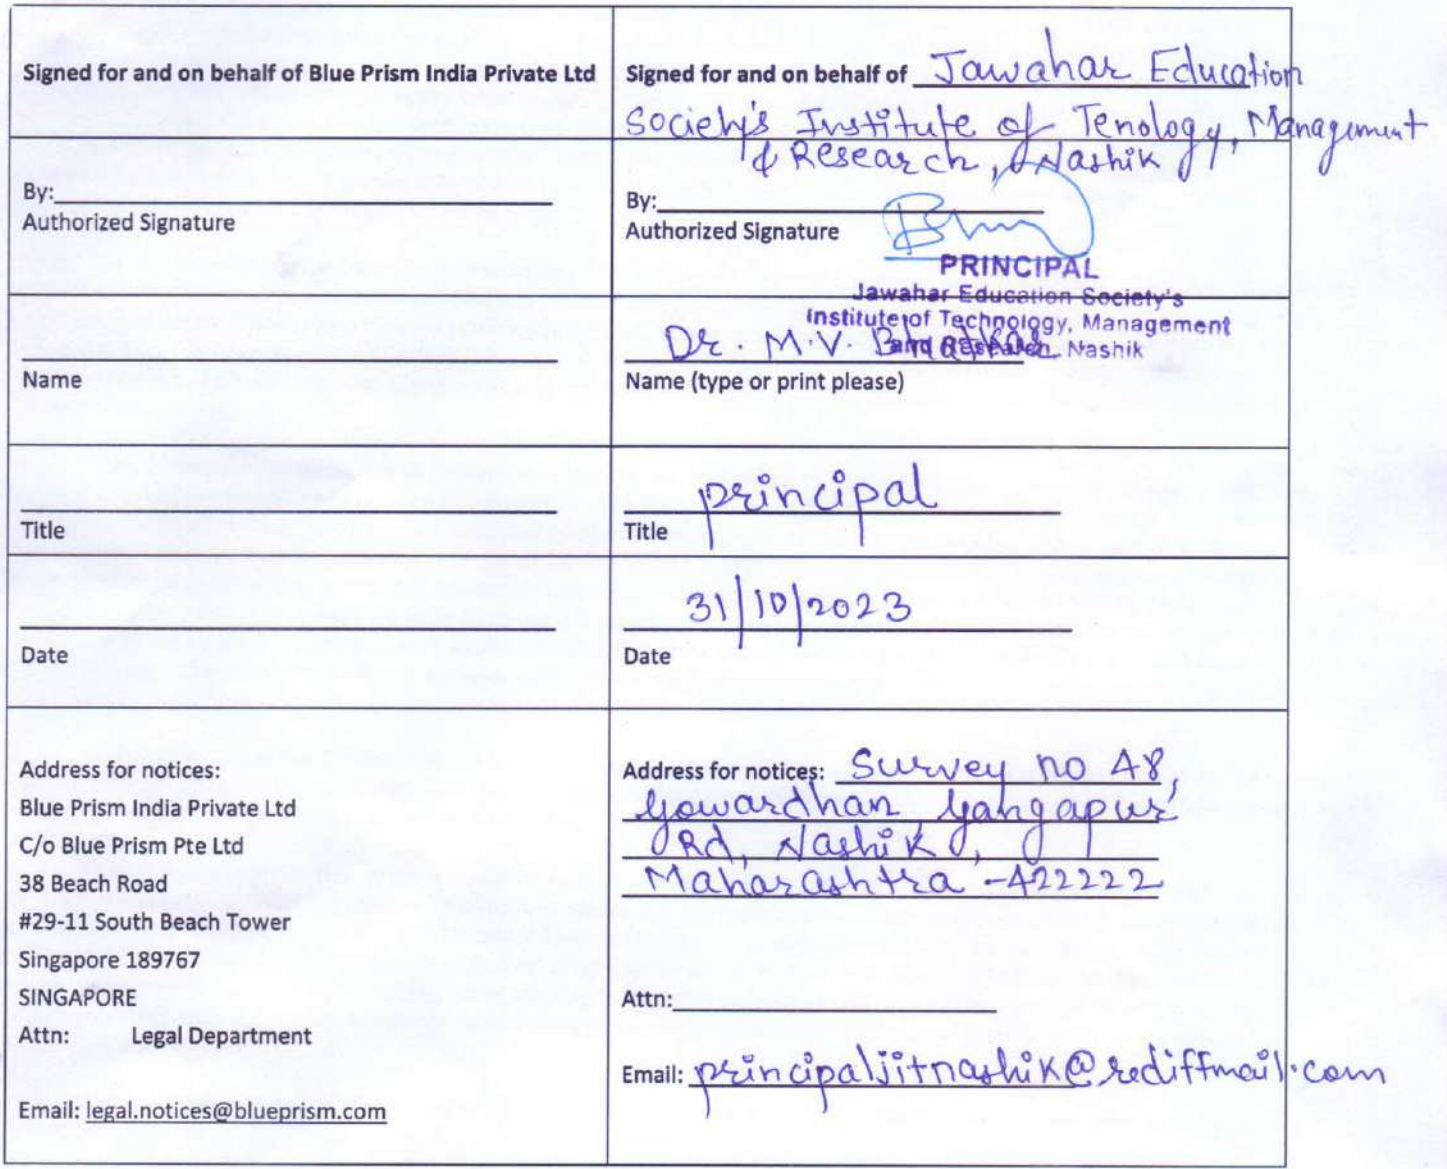 Signed for and on behalf of Blue Prism India Private Ltd
By:
Authorized Signature
Name
Title
Date
Address for notices:
Blue Prism India Private Ltd
C/o Blue Prism Pte Ltd
38 Beach Road
#29-11 South Beach Tower
Singapore 189767
SINGAPORE
Attn: Legal Department
Email: legal.notices@blueprism.com
Signed for and on behalf of Jawahar Education
Society's Institute of Tenology, Management
& Research, Nashik
By:
Authorized Signature
PRINCIPAL
Jawahar Education Society's
Institute of Technology, Management
and Research, Nashik
Dr. M.V.
Name (type or print please)
principal
Title
31/10/2023
Date
Address for notices: Survey no 48,
Gowardhan Gangapur
Rd, Nashik,
Maharashtra -422222
Attn:
Email: principaljitnashik@rediffmail.com